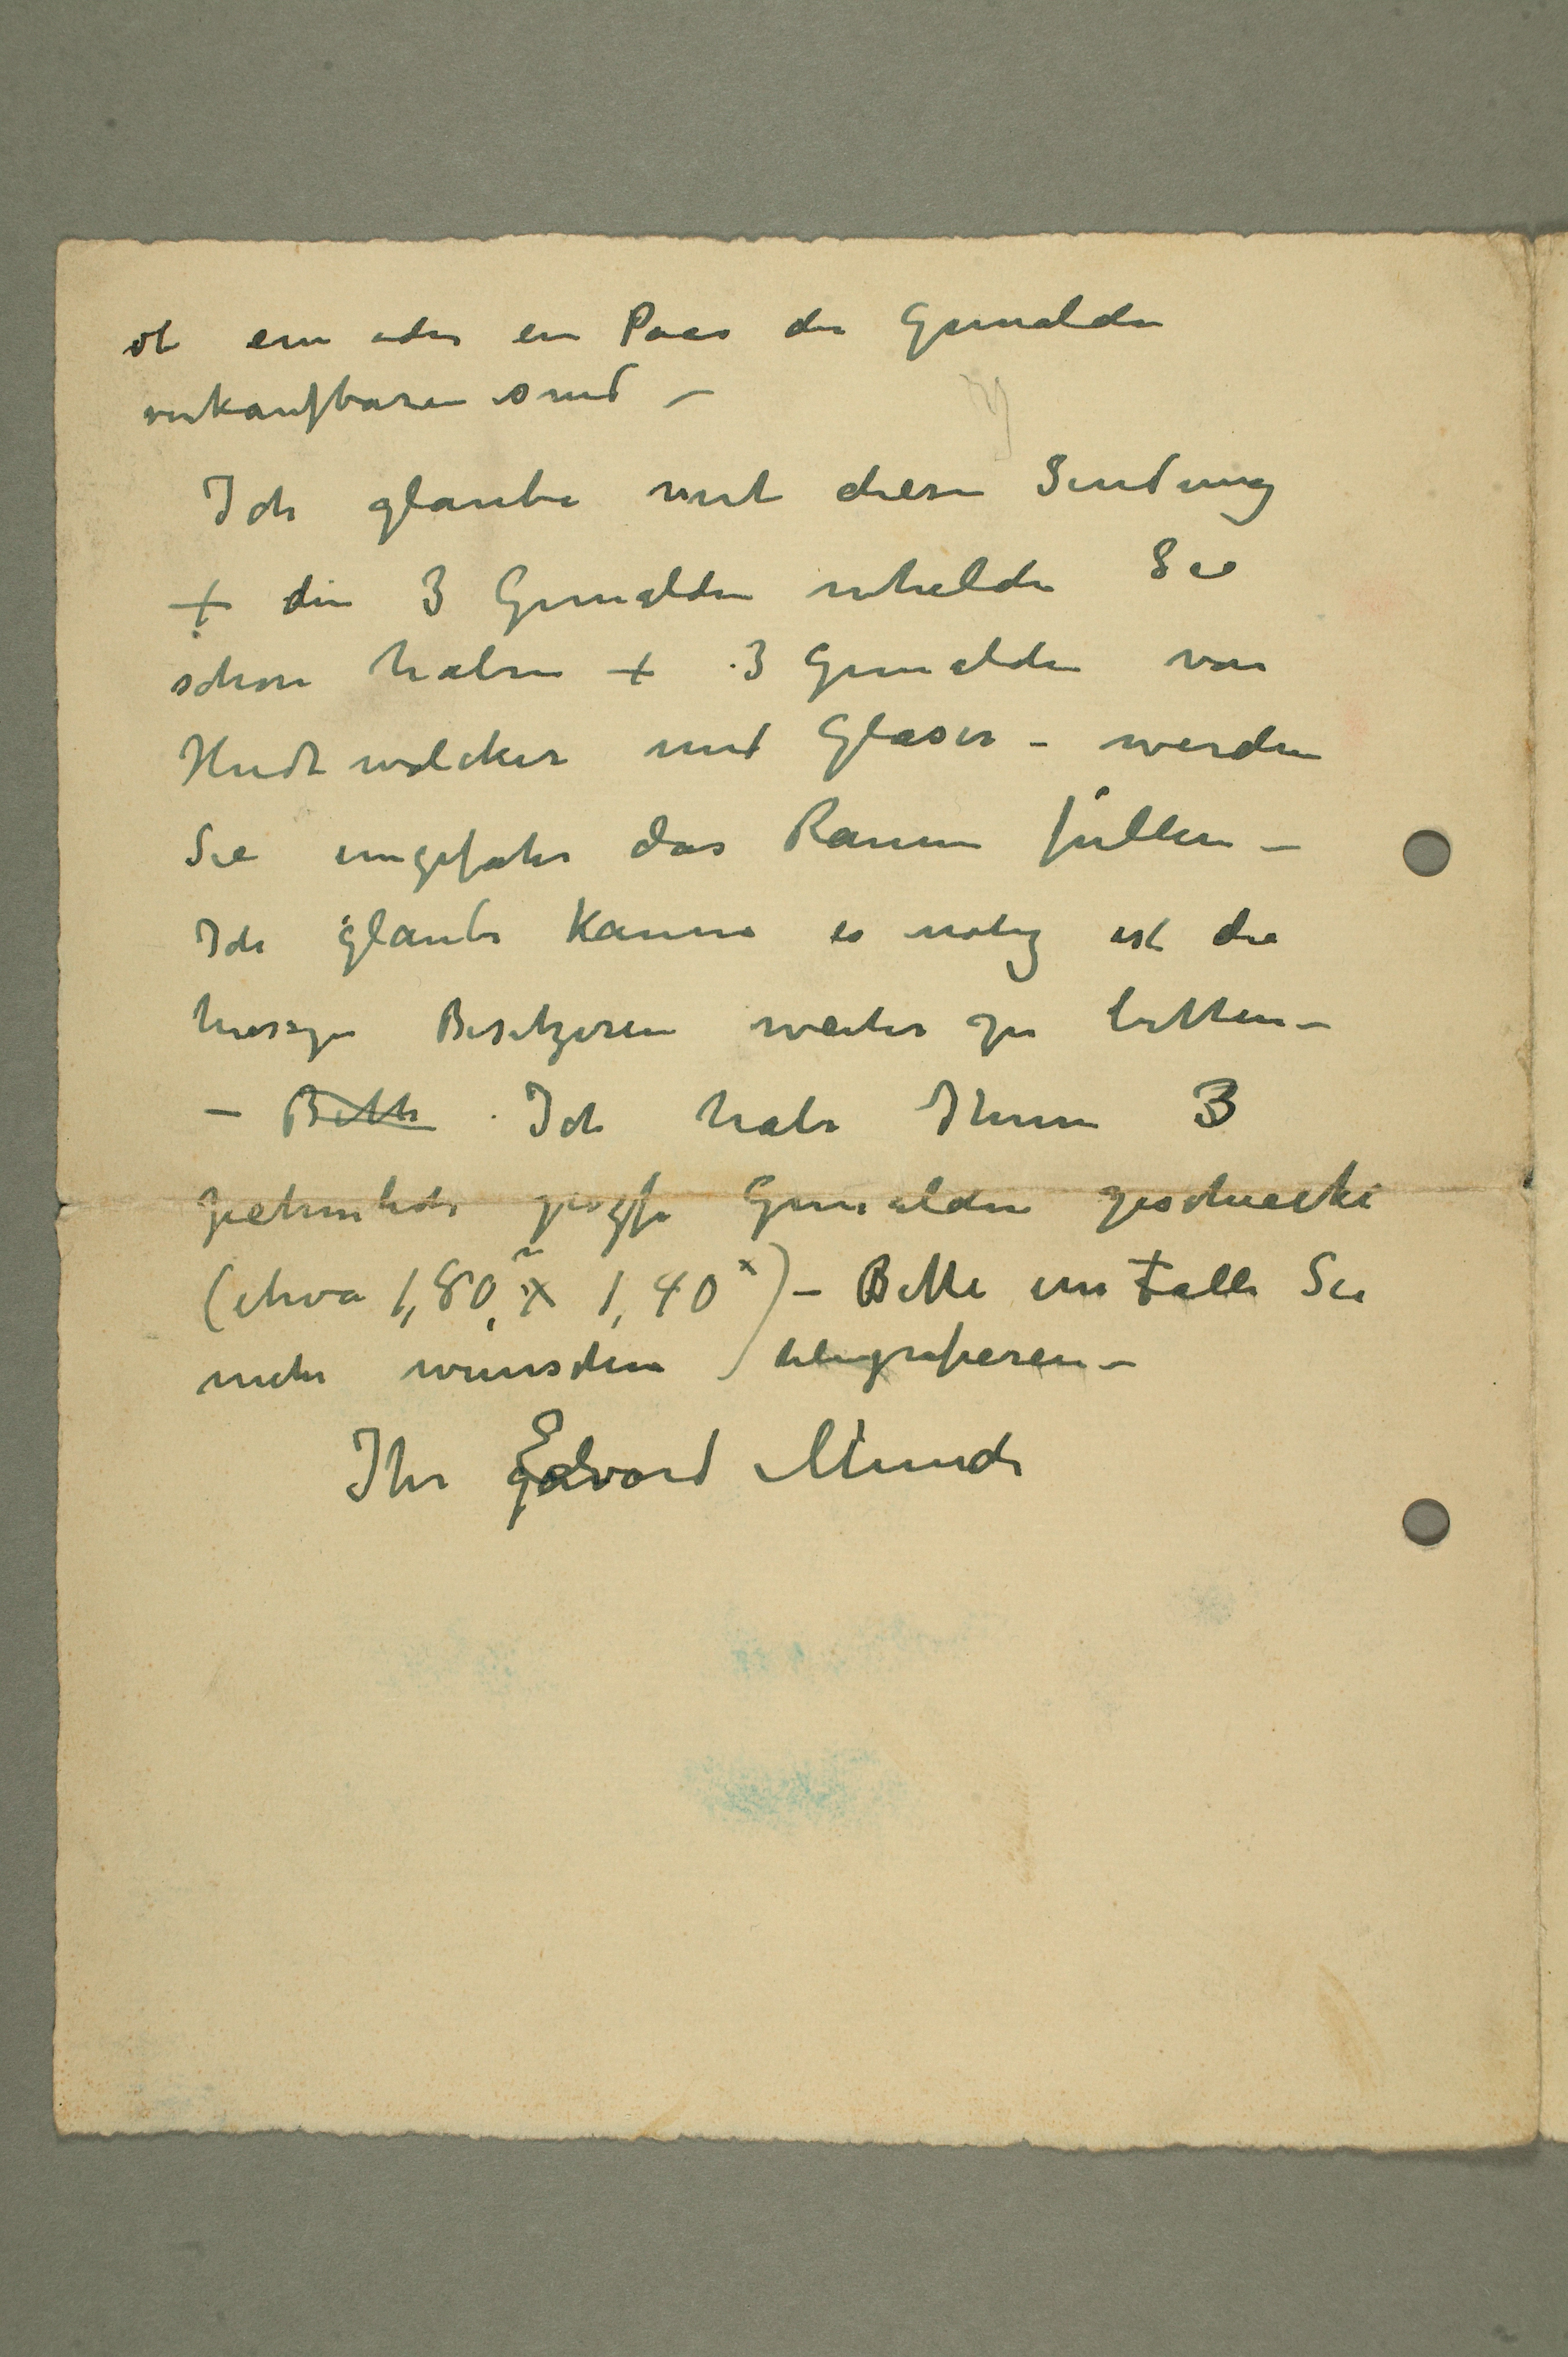 ob ein oder ein Paar der Gemälden
verkaufbaren sind –
Ich glaube mit diesen Sendung
+ die 3 Gemälden whelche Sie
schon haben + 3 Gemälden von
Hudtwalcker und Glaser – werden
Sie ungefahr das Raum füllen –
Ich glaube kaum es nötig ist die
hiesige Besitzeren weiter zu bitten –
– Bitte Ich habe Ihnen 3
ziehmlich große Gemälden geschickt
(etwa 1,80 x 1,40 x) – Bitte im Falle Sie
mehr wünschen telegrafieren –
Ihr Edvard Munch